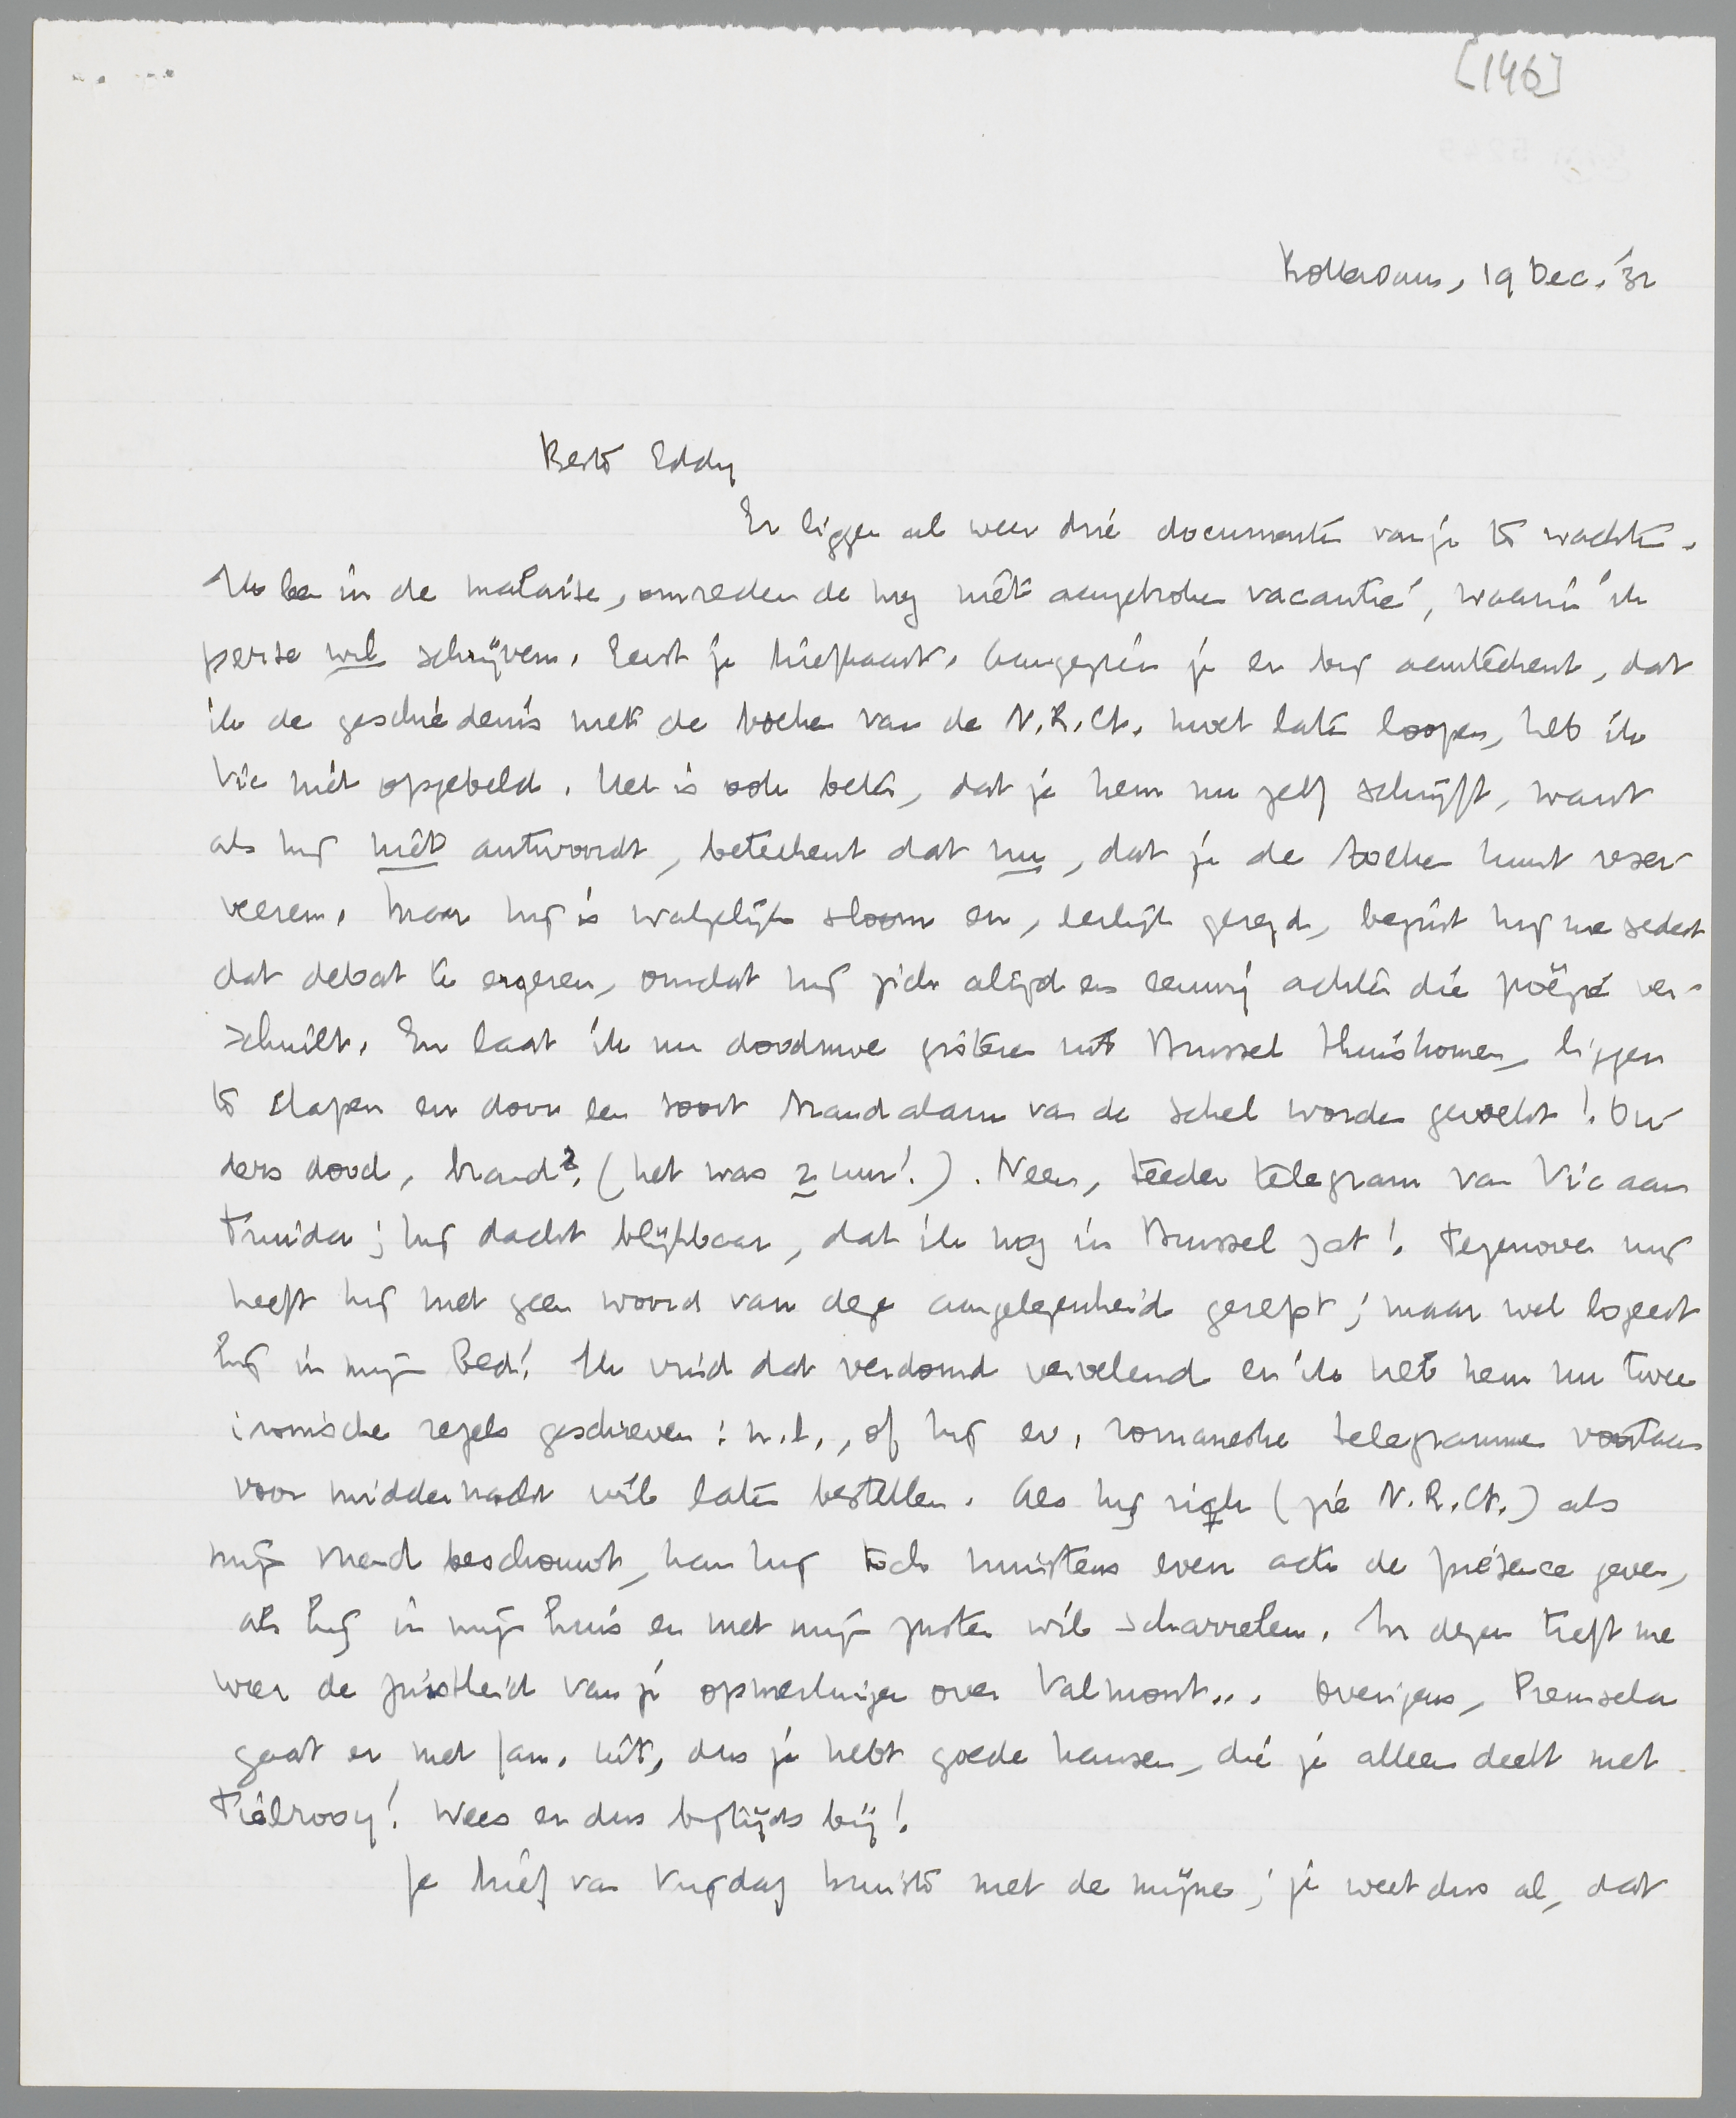 [146]
Rotterdam, 19 Dec. '32
Beste Eddy
Er liggen al weer drie documenten van je te wachten.
Ik ben in de malaise, omreden de nog niet aangebroken vacantie, waarin ik
perse wil schrijven. Eerst je briefkaart. Aangezien je er bij aanteekent, dat
ik de geschiedenis met de boeken van de N.R.Ct. moet laten loopen, heb ik
Vic niet opgebeld. Het is ook beter, dat je hem nu zelf schrijft, want
als hij niet antwoordt, beteekent dat nu, dat je de boeken kunt reser-
veeren. Maar hij is walgelijk sloom en, eerlijk gezegd, begint hij me sedert
dat debat te ergeren, omdat hij zich altijd en eeuwig achter die poëzie ver-
schuilt. En laat ik nu doodmoe gisteren uit Brussel thuiskomen, liggen
te slapen en door een soort brandalarm van de schel worden gewekt! Ou-
ders dood, brand? (het was 2 uur!). Neen, teeder telegram van Vic aan
Truida; hij dacht blijkbaar, dat ik nog in Brussel zat! Tegenover mij
heeft hij met geen woord van deze aangelegenheid gerept; maar wel logeert
hij in mijn bed! Ik vind dat verdomd vervelend en ik heb hem nu twee
ironische regels geschreven: n.l., of hij ev. romaneske telegrammen voortaan
voor middernacht wil laten bestellen. Als hij zich (zie N.R.Ct.) als
mijn vriend beschouwt, kan hij toch minstens even acte de présence geven,
als hij in mijn huis en met mijn zuster wil scharrelen. In dezen treft me
weer de juistheid van je opmerkingen over Valmont... Overigens, Premsela
gaat er met Jan. uit, dus je hebt goede kansen, die je alleen deelt met
Tielrooy! Wees er dus bijtijds bij!
Je brief van Vrijdag kruiste met de mijne; je weet dus al, dat